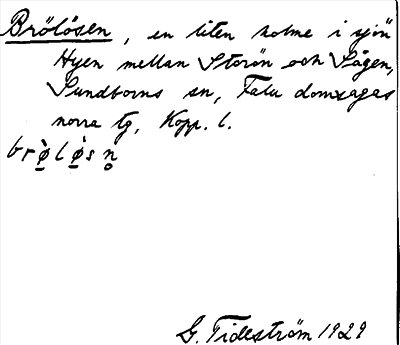 Brölösen, en liten holme i sjön
Hyen mellan Storön och Sågen,
Sundborns sn, Falu domsagas
norra tg, Kopp. l.
brø̠̀lø̠̀sn̥
G. Tideström 1929